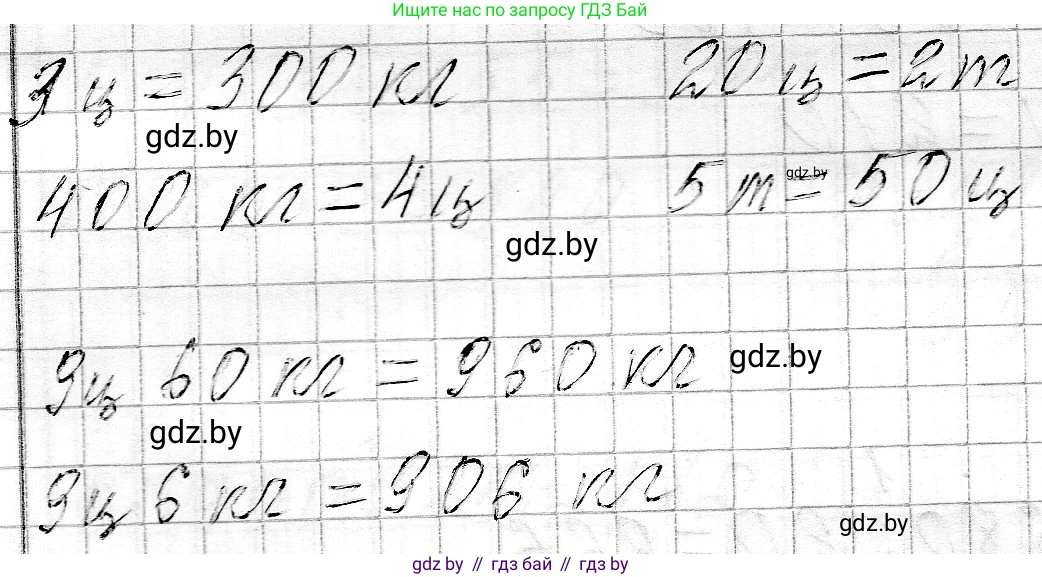 Ищите нас по запросу ГДЗ Бай
3 ц = 300 кг 20 ц = 2 т
gdz.by
400 кг = 4 ц 5 т = 50 ц
gdz.by
gdz.by
9 ц 60 кг = 960 кг
gdz.by
gdz.by
9 ц 6 кг = 906 кг
gdz.by
gdz.by // гдз бай // гдз by